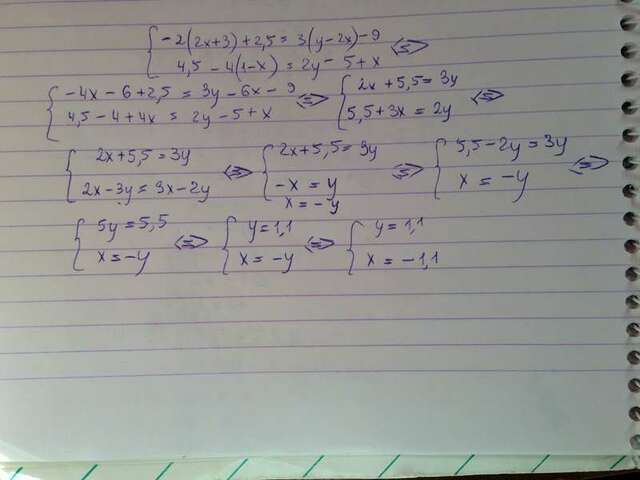 { -2(2x+3)+2,5=3(y-2x)-9
4,5-4(1-x)=2y-5+x <=>
{ -4x-6+2,5=3y-6x-9
4,5-4+4x=2y-5+x <=> { 2x+5,5=3y
5,5+3x=2y <=>
{ 2x+5,5=3y
2x-3y=3x-2y <=> { 2x+5,5=3y
-x=y
x=-y <=> { 5,5-2y=3y
x=-y <=>
{ 5y=5,5
x=-y <=> { y=1,1
x=-y <=> { y=1,1
x=-1,1